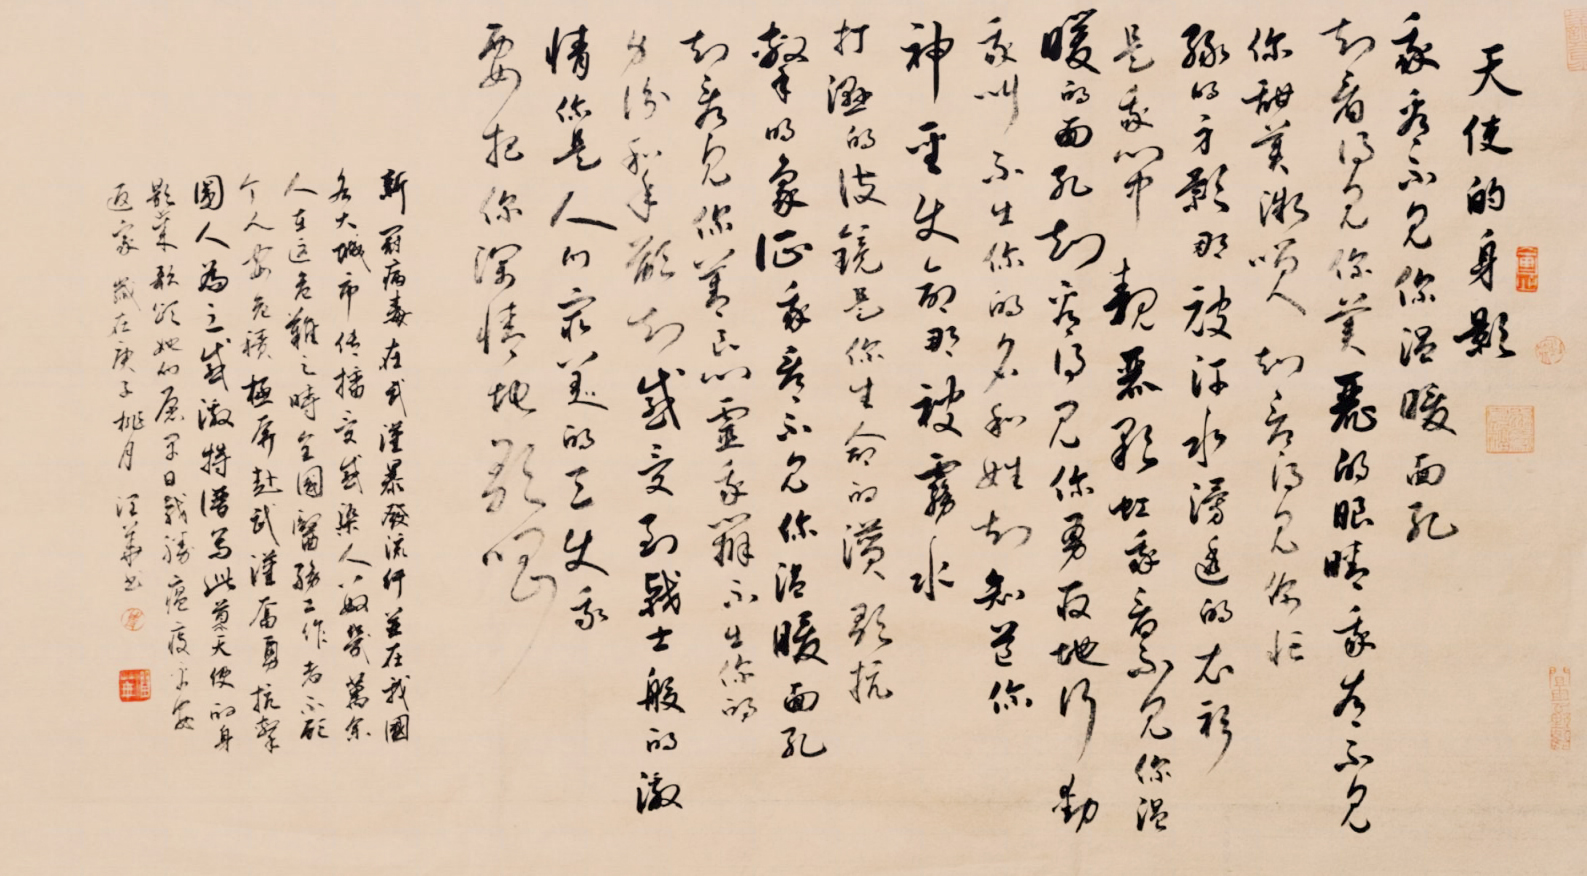 天使的身影
我看不見你温暖面孔
却看得見你美麗的眼睛我看不見
你甜美微笑却看得見你忙
碌的身影那被汗水濕透的衣衫
是我心中靚麗彩虹我看不見你温
暖的面孔却看得見你勇敢地行動
我叫不出你的名和姓却知道你
神聖使命那被霧水
打濕的護鏡是你生命的讚歌抗
擊的象征我看不見你温暖面孔
却看見你善良心靈我辨不出你的
身份和年齡却感受到戰士般的激
情你是人们最美的天使我
要把你深情地歌唱
新冠病毒在武漢暴發流行並在我國
各大城市传播受感染人数幾萬余
人在这危難之時全國醫務工作者不顧
个人安危積極奔赴武漢奮勇抗擊
國人為之感激特譜寫此首天使的身
影来歌頌她们愿早日戰勝瘟疫平安
返家歲在庚子桃月汪華書